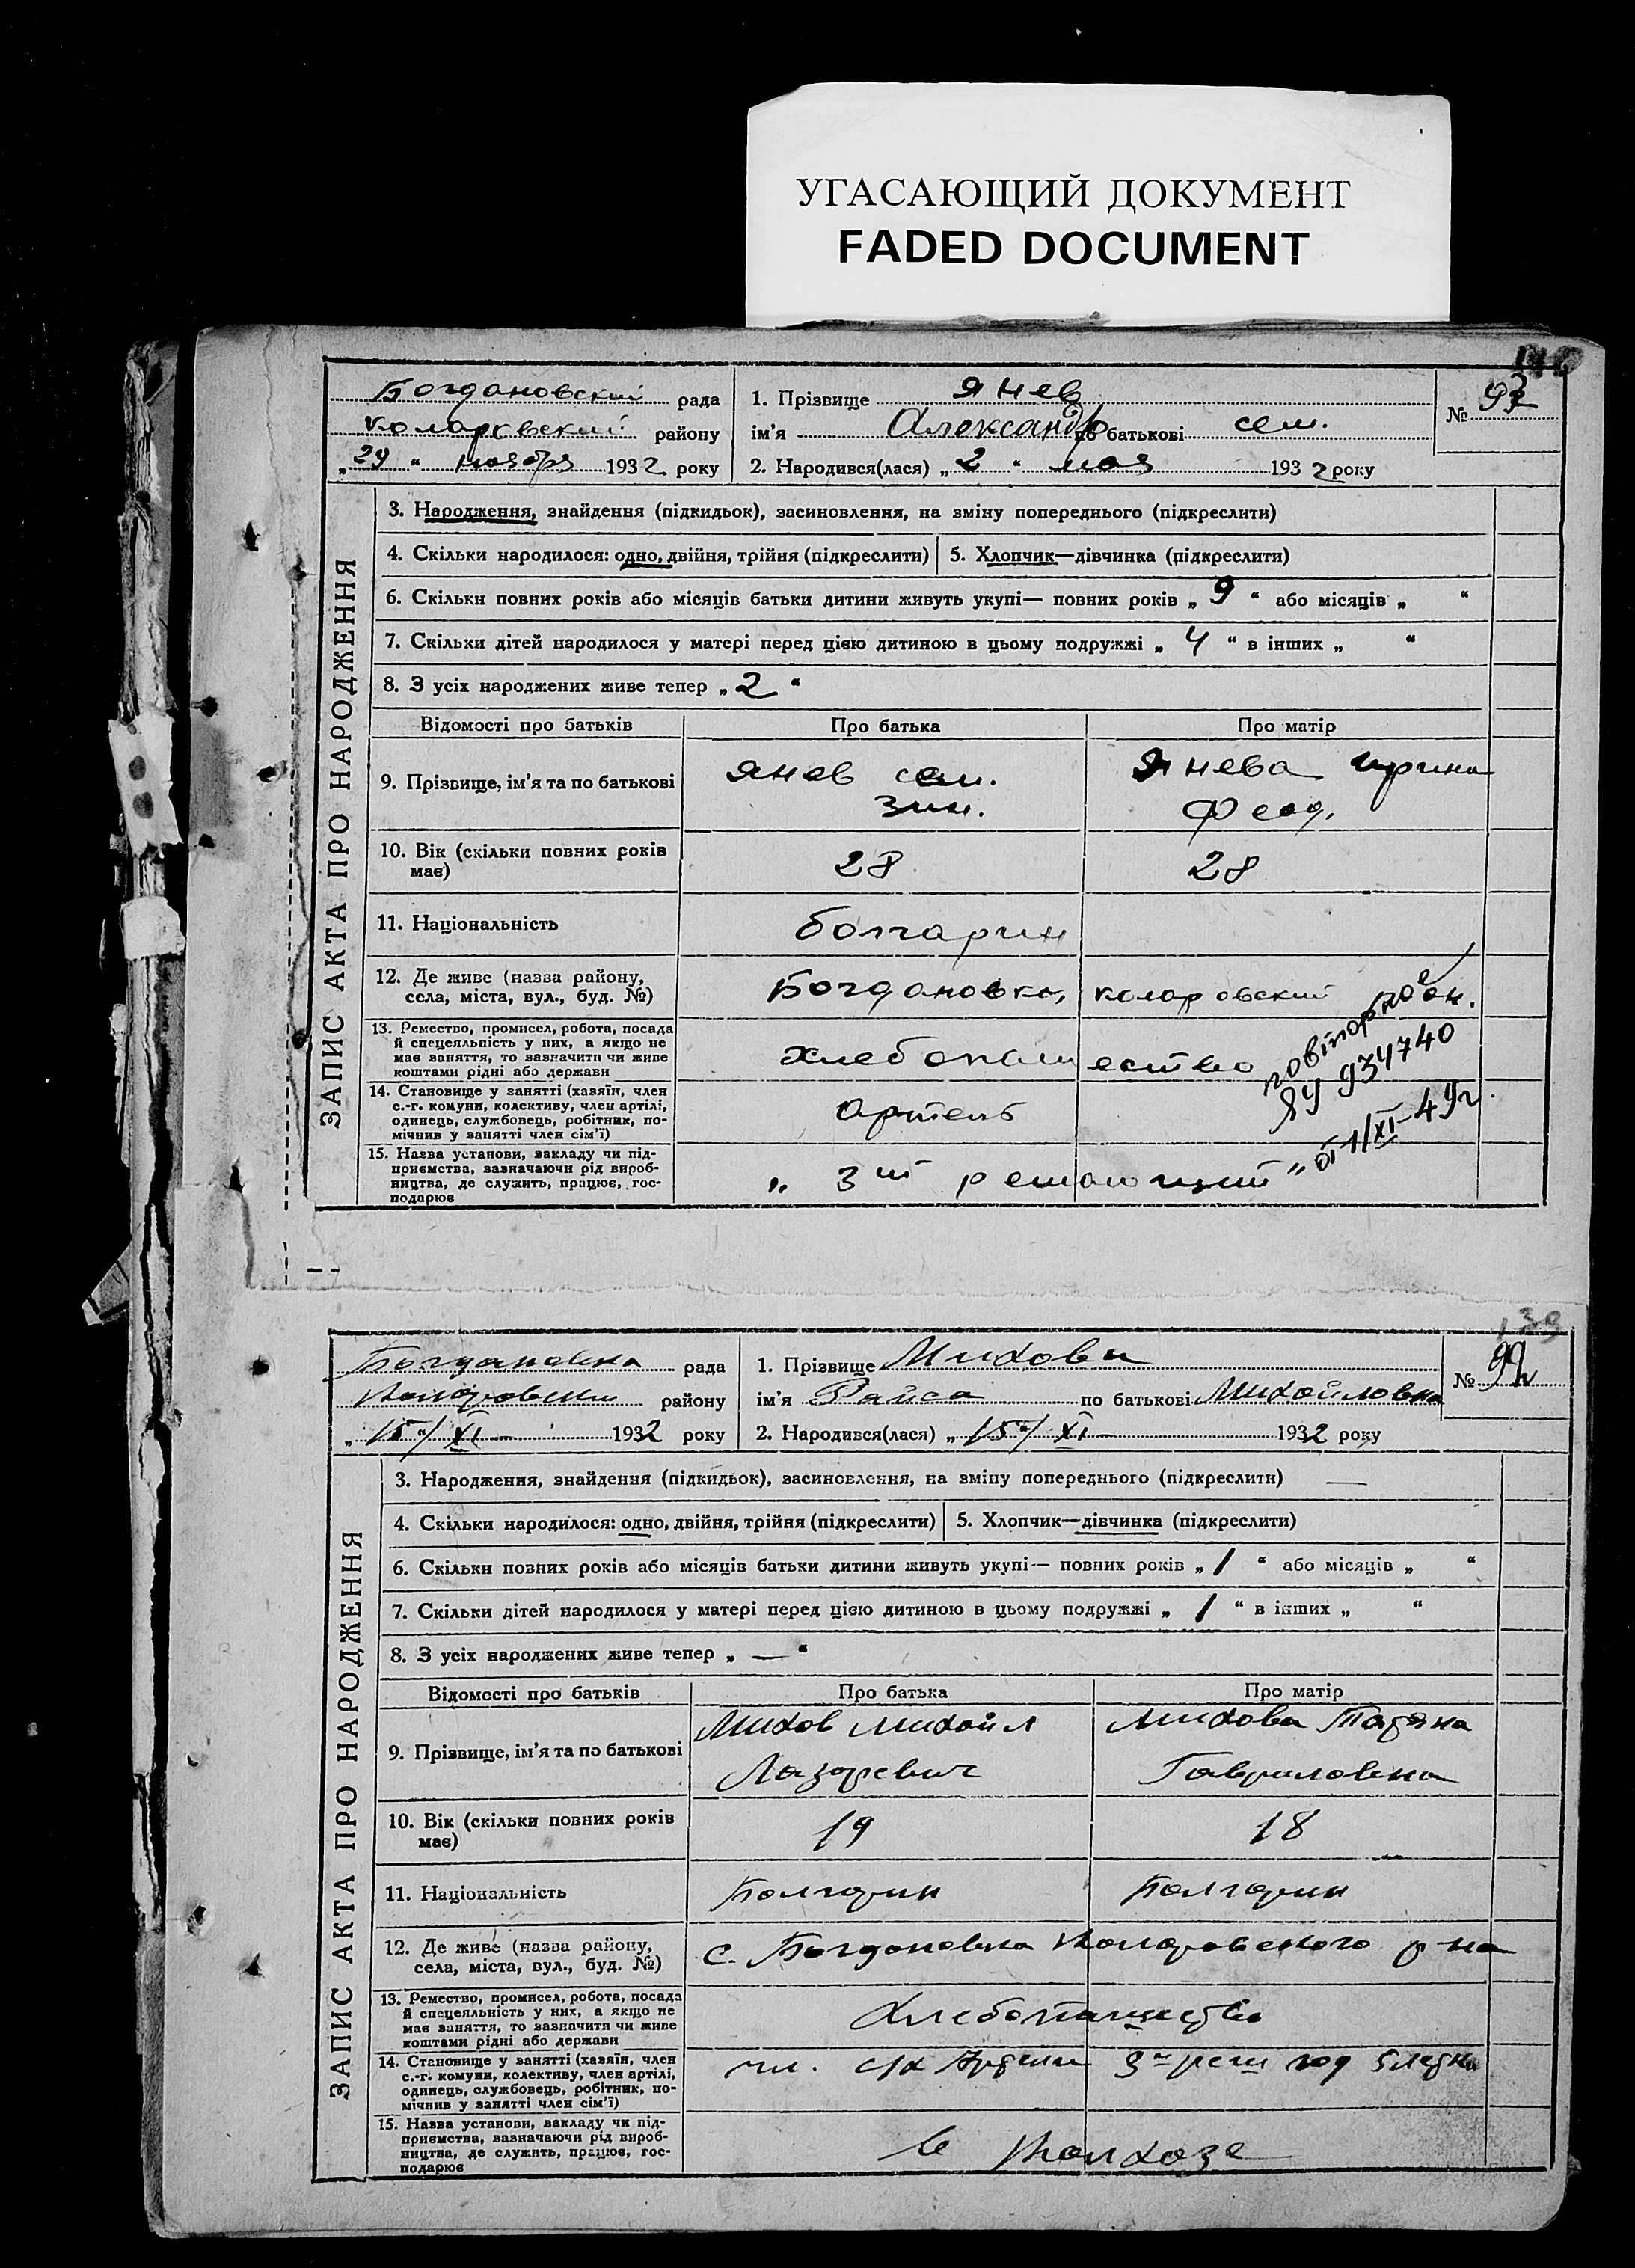 УГАСАЮЩИЙ ДОКУМЕНТ
FADED DOCUMENT
Богдановский рада
коларовский району
„29“ ноября 1932 року
1. Прізвище Янев
ім'я Александр по батькові сем.
2. Народився(лася) „2“ мая 1932 року
№ 93
ЗАПИС АКТА ПРО НАРОДЖЕННЯ
3. Народження, знайдення (підкидьок), засиновлення, на зміну попереднього (підкреслити)
4. Скільки народилося: одно, двійня, трійня (підкреслити)
5. Хлопчик—дівчинка (підкреслити)
6. Скільки повних років або місяців батьки дитини живуть укупі— повних років „9“ або місяців „ “
7. Скільки дітей народилося у матері перед цією дитиною в цьому подружжі „4“ в інших „ “
8. З усіх народжених живе тепер „2“
Відомості про батьків Про батька Про матір
9. Прізвище, ім'я та по батькові
Янев сем.
Зин.
Янева Ирина
Феод.
10. Вік (скільки повних років
має)
28 28
11. Національність болгарин
12. Де живе (назва району,
села, міста, вул., буд. №)
Богдановка, коларовский
13. Ремество, промисел, робота, посада
й спецеяльність у них, а якщо не
має заняття, то зазначити чи живе
коштами рідні або держави
хлебопашество
14. Становище у занятті (хазяїн, член
с.-г. комуни, колективу, член артілі,
одинець, службовець, робітник, по-
мічнив у занятті член сім'ї)
Артель
15. Назва установи, закладу чи під-
приємства, зазначаючи рід вироб-
ництва, де служить, працює, гос-
подарює
„3ий решающий“
ЯУ 934740
от 1/XI-49г.
139
Богдановка рада
Коларовски району
„15“/XI 1932 року
1. Прізвище Михова
ім'я Раиса по батькові Михайловна
2. Народився(лася) „15“/XI 1932 року
№ 94
ЗАПИС АКТА ПРО НАРОДЖЕННЯ
3. Народження, знайдення (підкидьок), засиновлення, на зміну попереднього (підкреслити) —
4. Скільки народилося: одно, двійня, трійня (підкреслити)
5. Хлопчик—дівчинка (підкреслити)
6. Скільки повних років або місяців батьки дитини живуть укупі— повних років „1“ або місяців „ “
7. Скільки дітей народилося у матері перед цією дитиною в цьому подружжі „1“ в інших „ “
8. З усіх народжених живе тепер „—“
Відомості про батьків Про батька Про матір
9. Прізвище, ім'я та по батькові
Михов Михайл
Лазаревич
Михова Татяна
Гавриловна
10. Вік (скільки повних років
має)
19 18
11. Національність Болгарин Болгарин
12. Де живе (назва району,
села, міста, вул., буд. №)
с. Богдановка Коларовского р-на
13. Ремество, промисел, робота, посада
й спецеяльність у них, а якщо не
має заняття, то зазначити чи живе
коштами рідні або держави
Хлебопашество
14. Становище у занятті (хазяїн, член
с.-г. комуни, колективу, член артілі,
одинець, службовець, робітник, по-
мічнив у занятті член сім'ї)
чл. с/х Артели 3й реш год
15. Назва установи, закладу чи під-
приємства, зазначаючи рід вироб-
ництва, де служить, працює, гос-
подарює
в Колхозе